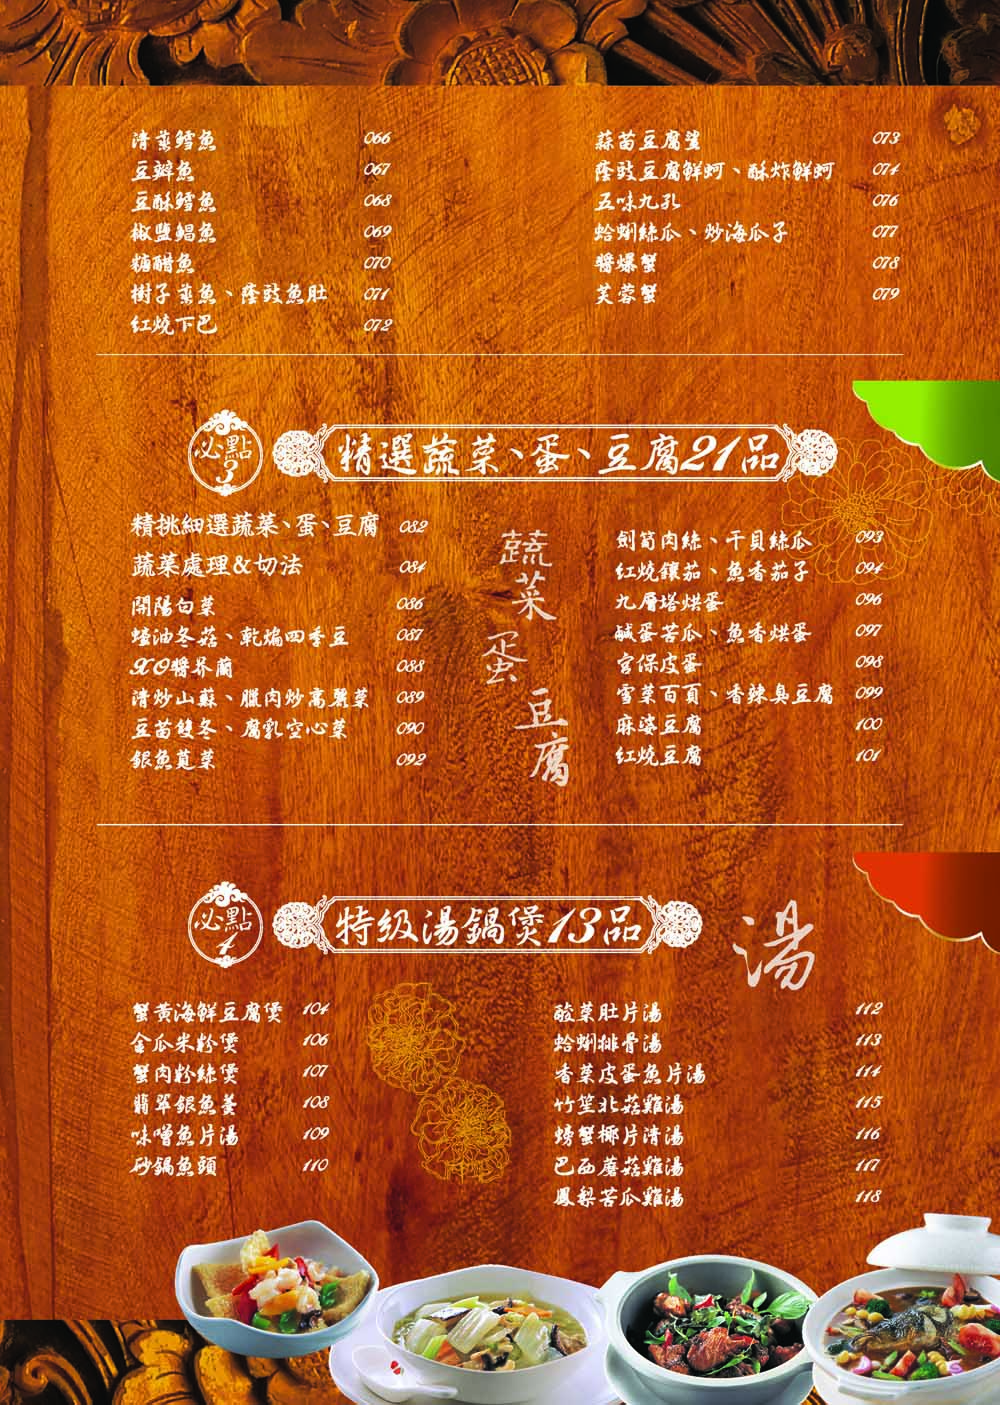 清蒸鱈魚 066
豆瓣魚 067
豆酥鱈魚 068
椒鹽鯧魚 069
糖醋魚 070
樹子蒸魚、蔭豉魚肚 071
紅燒下巴 072
蒜苗豆腐鯊 073
蔭豉豆腐鮮蚵、酥炸鮮蚵 074
五味九孔 076
蛤蜊絲瓜、炒海瓜子 077
醬爆蟹 078
芙蓉蟹 079
必點3
精選蔬菜、蛋、豆腐21品
精挑細選蔬菜、蛋、豆腐 082
蔬菜處理&切法 084
開陽白菜 086
蠔油冬菇、乾煸四季豆 087
XO醬芥蘭 088
清炒山蘇、臘肉炒高麗菜 089
豆苗雙冬、腐乳空心菜 090
銀魚莧菜 092
蔬菜
蛋
豆腐
劍筍肉絲、干貝絲瓜 093
紅燒鑲茄、魚香茄子 094
九層塔烘蛋 096
鹹蛋苦瓜、魚香烘蛋 097
宮保皮蛋 098
雪菜百頁、香辣臭豆腐 099
麻婆豆腐 100
紅燒豆腐 101
必點4
特級湯鍋煲13品
湯
蟹黃海鮮豆腐煲 104
金瓜米粉煲 106
蟹肉粉絲煲 107
翡翠銀魚羹 108
味噌魚片湯 109
砂鍋魚頭 110
酸菜肚片湯 112
蛤蜊排骨湯 113
香菜皮蛋魚片湯 114
竹笙北菇雞湯 115
螃蟹椰片清湯 116
巴西蘑菇雞湯 117
鳳梨苦瓜雞湯 118